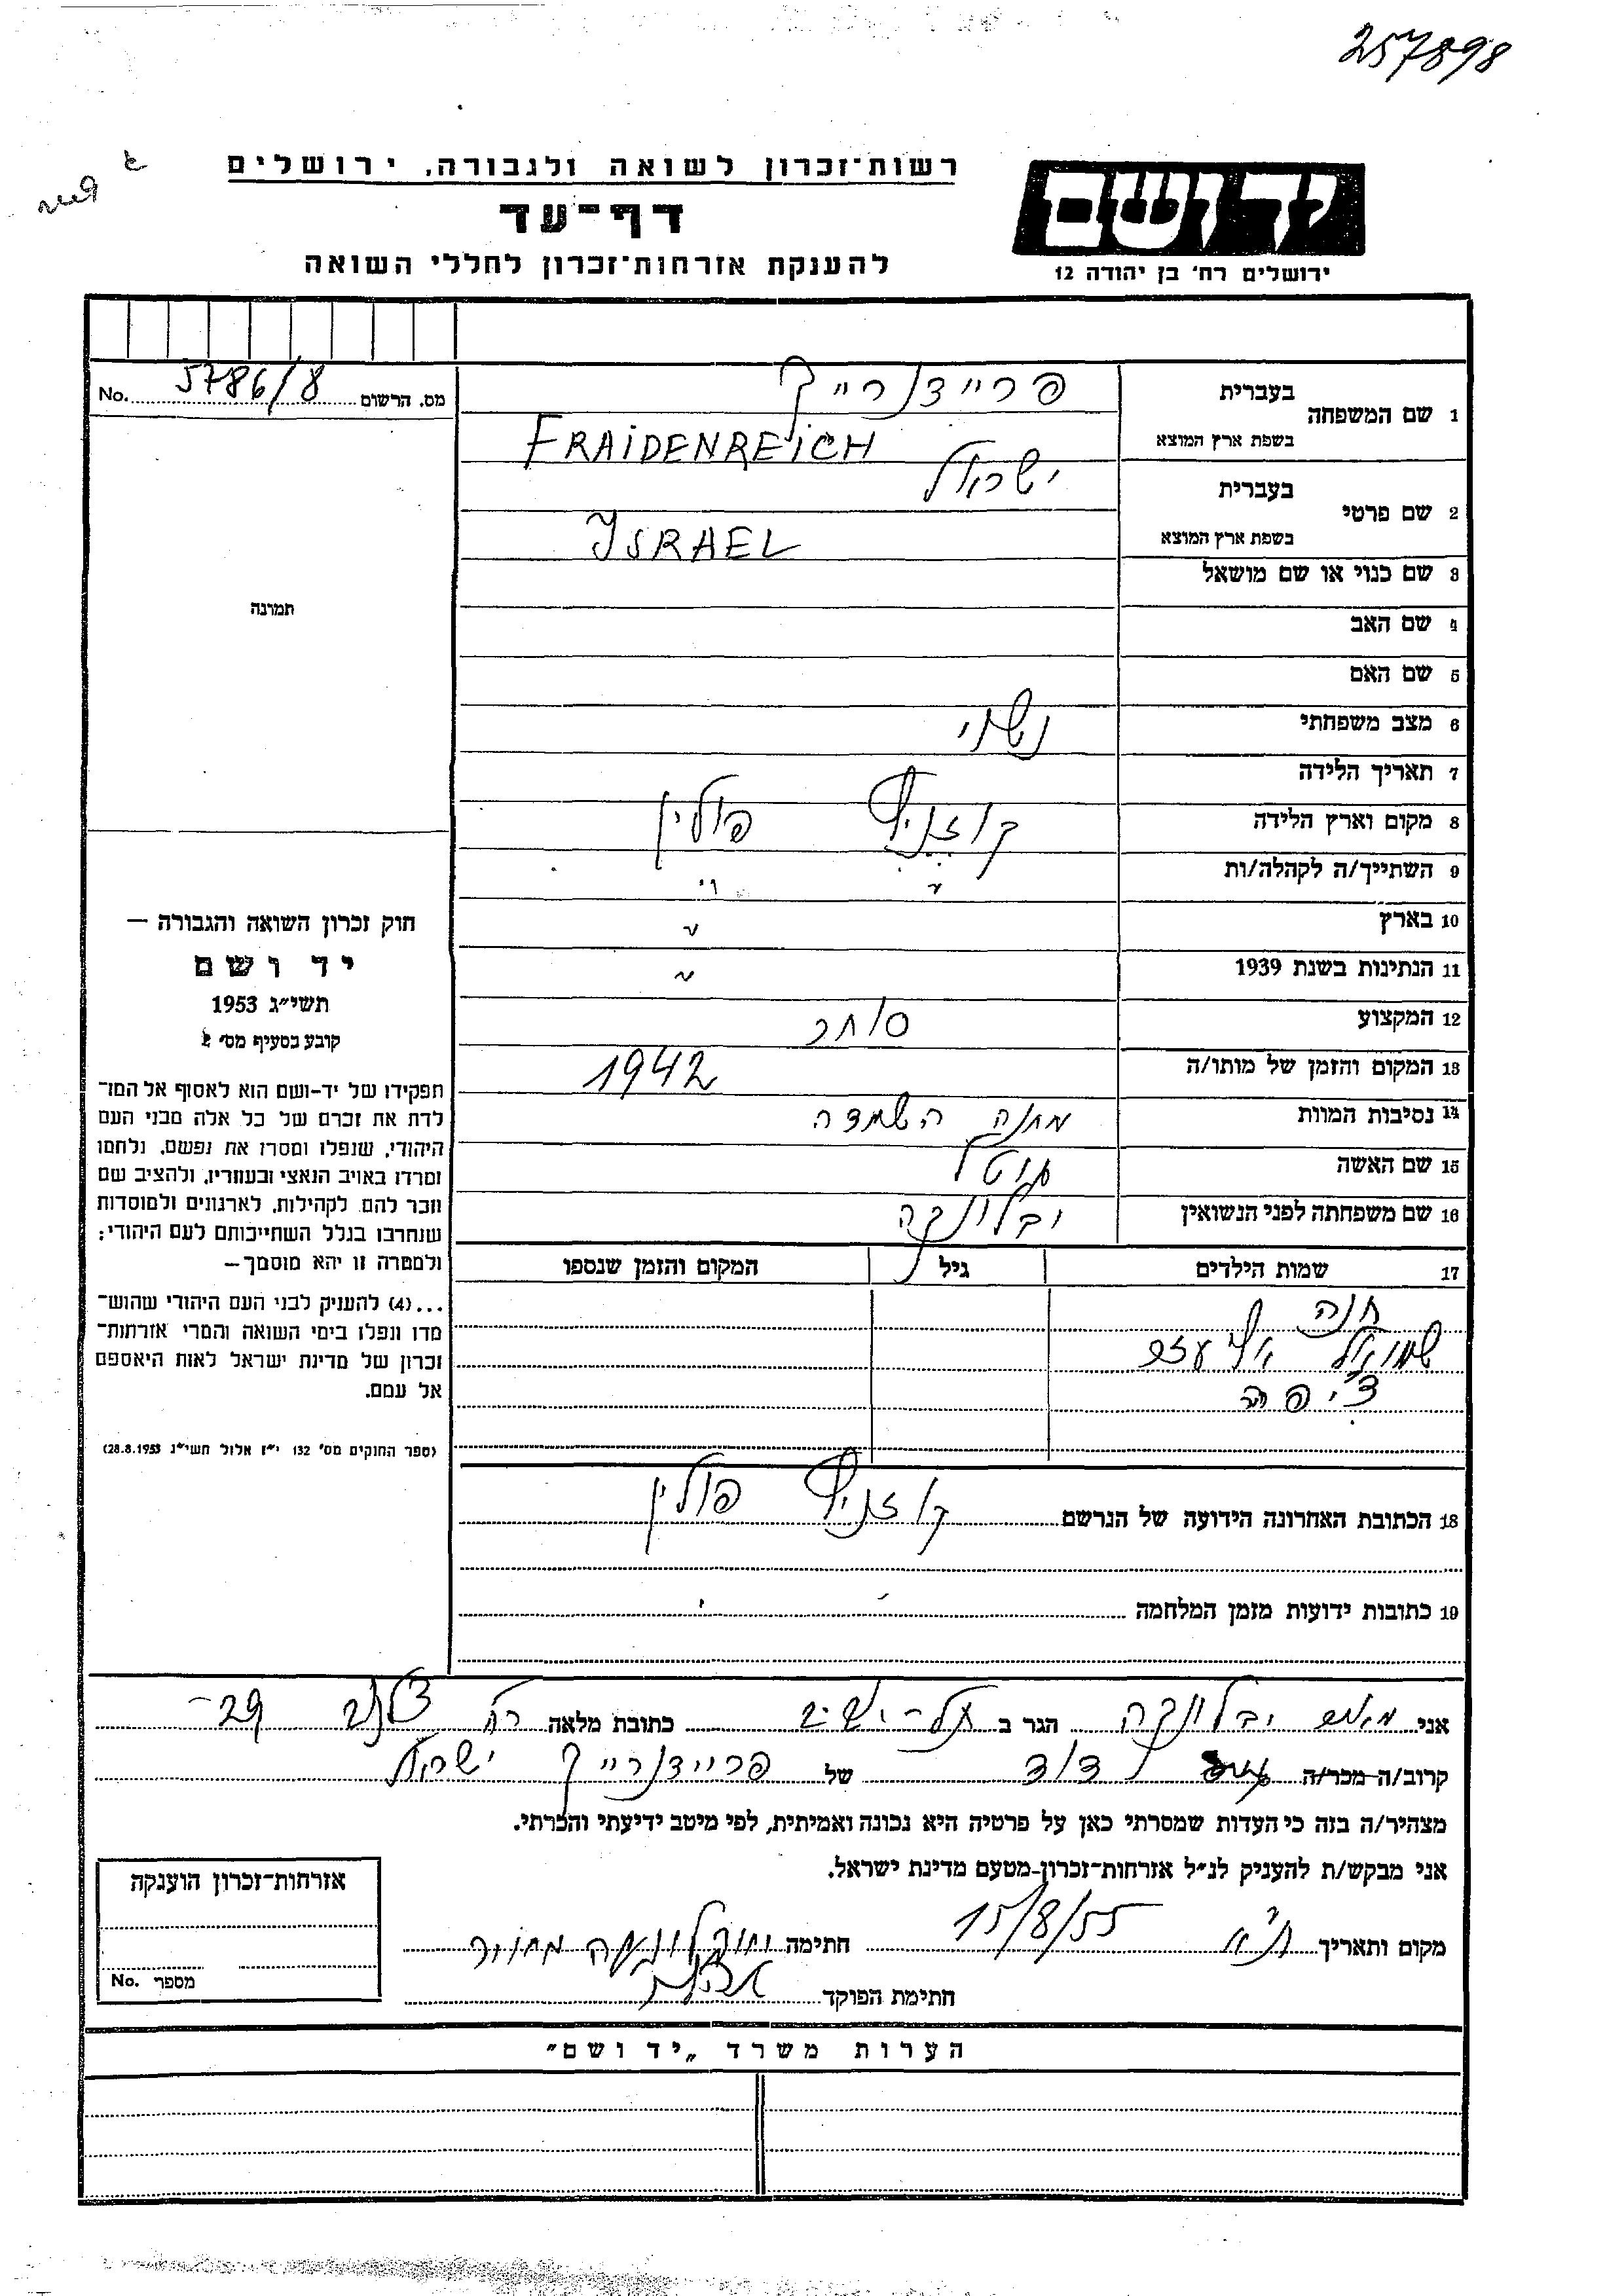 257898
רשות־זכרון לשואה ולגבורה, ירושלים
דף־עד
להענקת אזרחות־זכרון לחללי השואה
יד ושם
ירושלים רח' בן יהודה 12
מס. הרשום 5786/8 No.
1 שם המשפחה
בעברית פריידנרייך
בשפת ארץ המוצא FRAIDENREICH
2 שם פרטי
בעברית ישראל
בשפת ארץ המוצא ISRAEL
3 שם כנוי או שם מושאל
4 שם האב
5 שם האם
6 מצב משפחתי נשוי
7 תאריך הלידה
8 מקום וארץ הלידה קוזניץ פולין
9 השתייך/ה לקהלה/ות " "
10 בארץ "
11 הנתינות בשנת 1939 "
12 המקצוע סוחר
13 המקום והזמן של מותו/ה 1942
14 נסיבות המוות מחנה השמדה
15 שם האשה
16 שם משפחתה לפני הנשואין יבלונקה
17 שמות הילדים גיל המקום והזמן שנספו
חנה
שמואל אליעזר
ציפה
18 הכתובת האחרונה הידועה של הנרשם קוזניץ פולין
19 כתובות ידועות מזמן המלחמה
תמונה
חוק זכרון השואה והגבורה —
יד ושם
תשי״ג 1953
קובע בסעיף מס' 2
תפקידו של יד-ושם הוא לאסוף אל המו־
לדת את זכרם של כל אלה מבני העם
היהודי, שנפלו ומסרו את נפשם, נלחמו
ומרדו באויב הנאצי ובעוזריו, ולהציב שם
וזכר להם, לקהילות, לארגונים ולמוסדות
שנחרבו בגלל השתייכותם לעם היהודי;
ולמטרה זו יהא מוסמך —
...(4) להעניק לבני העם היהודי שהוש־
מדו ונפלו בימי השואה והמרי אזרחות־
זכרון של מדינת ישראל לאות היאספם
אל עמם.
(ספר החוקים מס' 132 י״ז אלול תשי״ג 28.8.1953)
אני יבלונקה הגר ב תל-אביב כתובת מלאה רח 29
קרוב/ה מכר/ה דוד של פריידנרייך ישראל
מצהיר/ה בזה כי העדות שמסרתי כאן על פרטיה היא נכונה ואמיתית, לפי מיטב ידיעתי והכרתי.
אני מבקש/ת להעניק לנ״ל אזרחות־זכרון-מטעם מדינת ישראל.
מקום ותאריך ת"א 15/8/55 חתימה
חתימת הפוקד
אזרחות־זכרון הוענקה
מספר No.
הערות משרד „יד ושם״